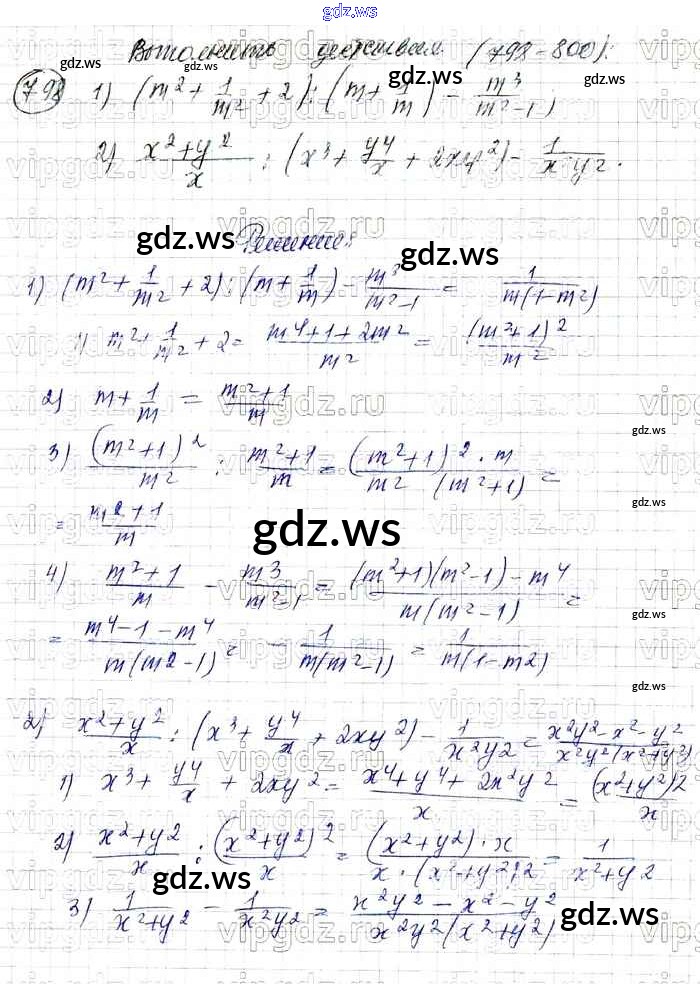 gdz.ws
Выполнить действия (798-800):
798 1) (m² + 1/m² + 2) : (m + 1/m) - m³/(m²-1)
2) (x²+y²)/x : (x³ + y⁴/x + 2xy²) - 1/(x²y²).
Решение:
1) (m² + 1/m² + 2) : (m + 1/m) - m³/(m²-1) = 1/(m(1-m²))
1) m² + 1/m² + 2 = (m⁴+1+2m²)/m² = (m²+1)²/m²
2) m + 1/m = (m²+1)/m
3) (m²+1)²/m² : (m²+1)/m = ((m²+1)² · m)/(m² (m²+1)) =
= (m²+1)/m
4) (m²+1)/m - m³/(m²-1) = ((m²+1)(m²-1) - m⁴)/(m(m²-1)) =
= (m⁴-1-m⁴)/(m(m²-1)) = - 1/(m(m²-1)) = 1/(m(1-m²))
2) (x²+y²)/x : (x³ + y⁴/x + 2xy²) - 1/(x²y²) = (x²y²-x²-y²)/(x²y²(x²+y²))
1) x³ + y⁴/x + 2xy² = (x⁴+y⁴+2x²y²)/x = (x²+y²)²/x
2) (x²+y²)/x : (x²+y²)²/x = ((x²+y²) · x)/(x · (x²+y²)²) = 1/(x²+y²)
3) 1/(x²+y²) - 1/(x²y²) = (x²y²-x²-y²)/(x²y²(x²+y²))